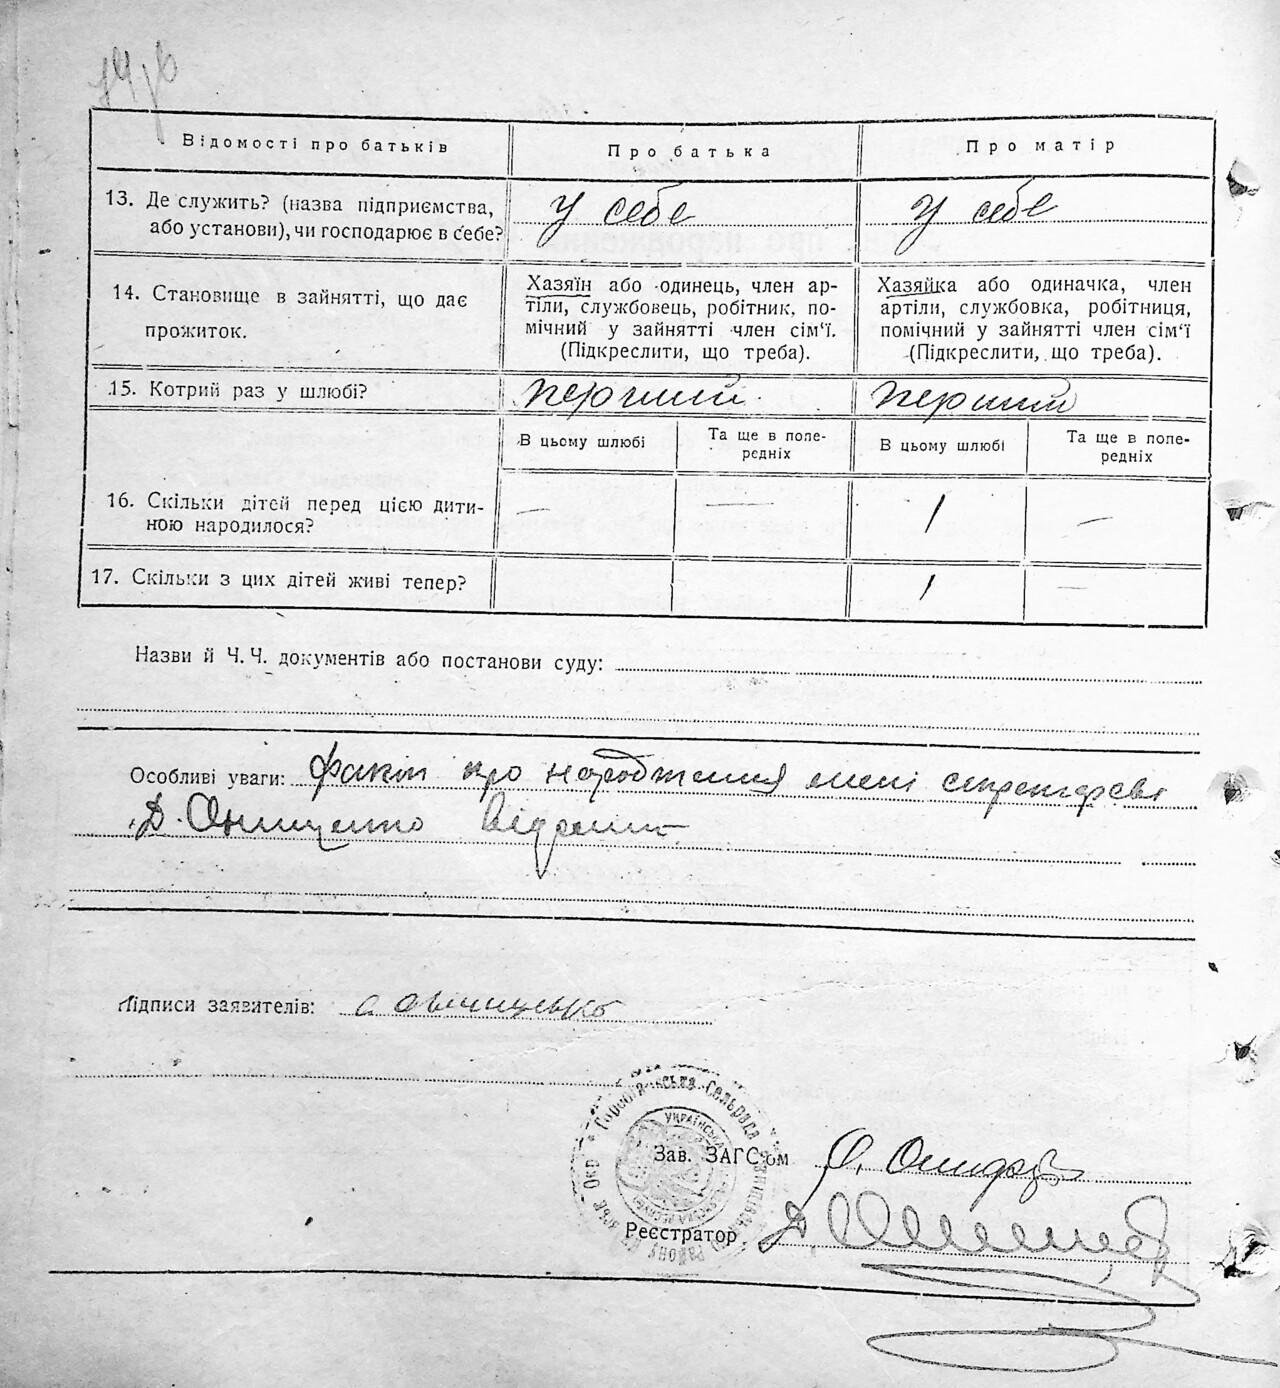 Відомості про батьків Про батька Про матір
13. Де служить? (назва підприємства, або установи), чи господарює в себе? У себе У себе
14. Становище в зайнятті, що дає прожиток.
Хазяїн або одинець, член ар-
тіли, службовець, робітник, по-
мічний у зайнятті член сім'ї.
(Підкреслити, що треба).
Хазяйка або одиначка, член
артіли, службовка, робітниця,
помічний у зайнятті член сім'ї
(Підкреслити, що треба).
15. Котрий раз у шлюбі? перший перший
В цьому шлюбі Та ще в попе-
редніх В цьому шлюбі Та ще в попе-
редніх
16. Скільки дітей перед цією дити-
ною народилося? — — 1 —
17. Скільки з цих дітей живі тепер? 1 —
Назви й Ч. Ч. документів або постанови суду:
Особливі уваги: Факт про народження мені секретареві
Д. Онищенко відомий
Підписи заявителів:
Сельрада
УКРАЇНСЬКА
Зав. ЗАГС'ом
Реєстратор